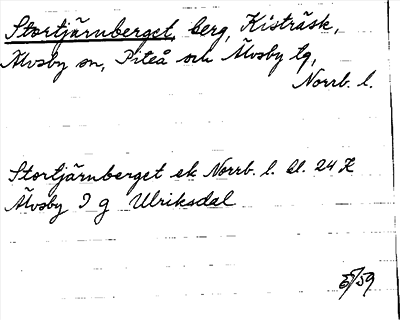 Stortjärnberget, berg, Kisträsk,
Älvsby sn, Piteå och Älvsby tg,
Norrb. l.
Stortjärnberget ek Norrb. l. bl. 24 K
Älvsby I g Ulriksdal